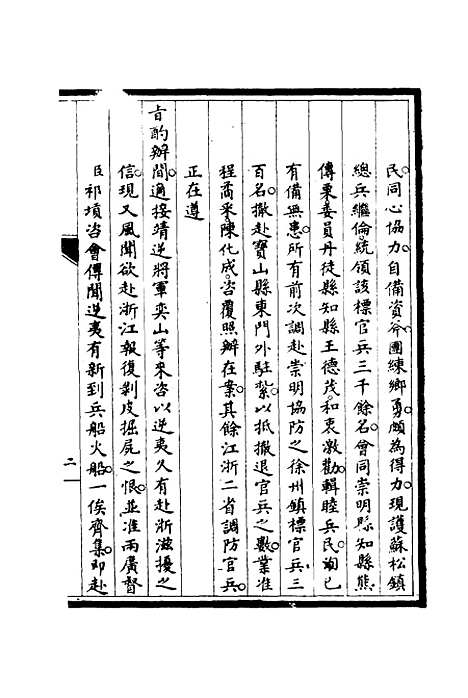 民同心協力自備資斧團練鄉勇頗為得力現護蘇松鎮
總兵繼倫統領該標官兵三千餘名會同崇明縣知縣熊
傳栗委員丹徒縣知縣王德茂和衷激勸輯睦兵民洵已
有備無患所有前次調赴崇明協防之徐州鎮標官兵三
百名撤赴寶山縣東門外駐紮以抵撤退官兵之數業准
程矞采陳化成咨覆照辦在案其餘江浙二省調防官兵
正在遵
旨酌辦間適接靖逆將軍奕山等來咨以逆夷久有赴浙滋擾之
信現又風聞欲赴浙江報復剝皮掘屍之恨並准兩廣督
臣祁𡎴咨會傳聞逆夷有新到兵船火船一俟齊集即赴
二